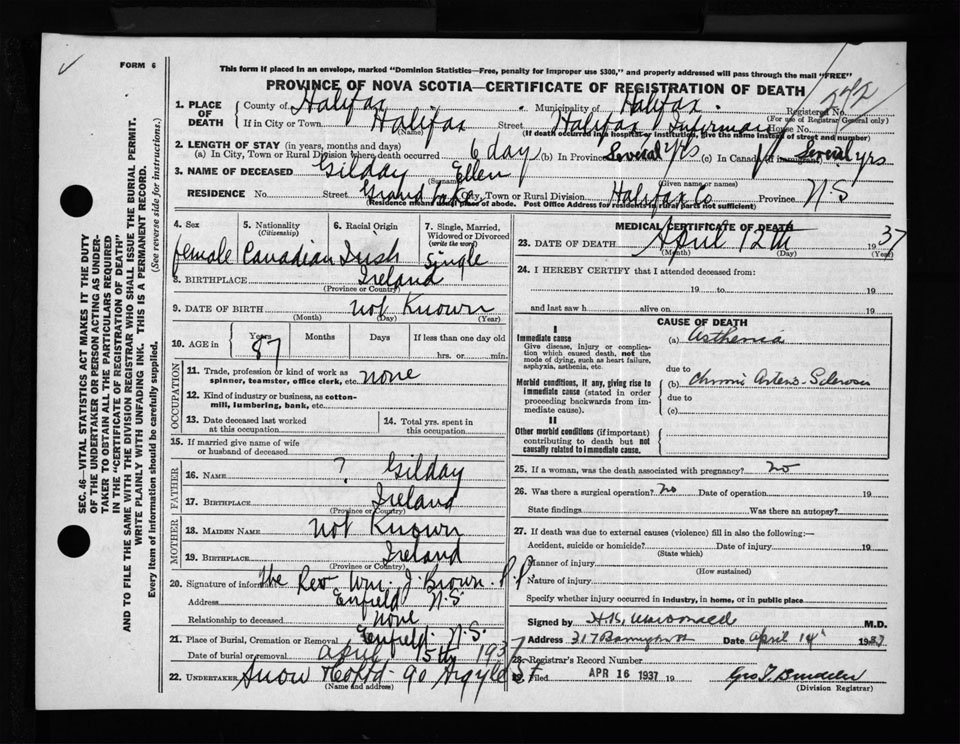 FORM 6
This form if placed in an envelope, marked "Dominion Statistics—Free, penalty for improper use $300," and properly addressed will pass through the mail "FREE"
PROVINCE OF NOVA SCOTIA—CERTIFICATE OF REGISTRATION OF DEATH
SEC. 46—VITAL STATISTICS ACT MAKES IT THE DUTY
OF THE UNDERTAKER OR PERSON ACTING AS UNDER-
TAKER TO OBTAIN ALL THE PARTICULARS REQUIRED
IN THE "CERTIFICATE OF REGISTRATION OF DEATH"
AND TO FILE THE SAME WITH THE DIVISION REGISTRAR WHO SHALL ISSUE THE BURIAL PERMIT.
WRITE PLAINLY WITH UNFADING INK. THIS IS A PERMANENT RECORD.
Every item of information should be carefully supplied. (See reverse side for instructions.)
1. PLACE OF DEATH County of Halifax Municipality of Halifax. Registered No. 242
(For use of Registrar General only)
If in City or Town Halifax Street Halifax Infirmary House No.
(Name) (If death occurred in a hospital or institution, give the name instead of street and number)
2. LENGTH OF STAY (in years, months and days)
(a) In City, Town or Rural Division where death occurred 6 day (b) In Province Several yrs (c) In Canada if immigrant Several yrs
3. NAME OF DECEASED Gilday Ellen
(Surname) (Given name or names)
RESIDENCE No. Street Grand Lake City, Town or Rural Division Halifax Co Province N S
(Residence means usual place of abode. Post Office Address for residents in rural parts not sufficient)
4. Sex 5. Nationality (Citizenship) 6. Racial Origin 7. Single, Married, Widowed or Divorced (write the word)
female Canadian Irish Single
8. BIRTHPLACE Ireland
(Province or Country)
9. DATE OF BIRTH not Known
(Month) (Day) (Year)
10. AGE in Years Months Days If less than one day old
87 hrs. or min.
OCCUPATION
11. Trade, profession or kind of work as spinner, teamster, office clerk, etc. none
12. Kind of industry or business, as cotton-mill, lumbering, bank, etc.
13. Date deceased last worked at this occupation
14. Total yrs. spent in this occupation
15. If married give name of wife or husband of deceased
FATHER
16. NAME ? Gilday
17. BIRTHPLACE Ireland
(Province or Country)
MOTHER
18. MAIDEN NAME not Known
19. BIRTHPLACE Ireland
(Province or Country)
20. Signature of informant The Rev Wm. J Brown. P.P.
Address Enfield N.S.
Relationship to deceased none
21. Place of Burial, Cremation or Removal Enfield. N.S.
Date of burial or removal April 15th 1937
22. UNDERTAKER Snow Co Ltd - 90 Argyle St
(Name and address)
MEDICAL CERTIFICATE OF DEATH
23. DATE OF DEATH April 12th 1937
(Month) (Day) (Year)
24. I HEREBY CERTIFY that I attended deceased from:
19 to 19
and last saw h alive on 19
CAUSE OF DEATH
I
Immediate cause
Give disease, injury or complication which caused death, not the mode of dying, such as heart failure, asphyxia, asthenia, etc.
(a) Asthenia
due to
Morbid conditions, if any, giving rise to immediate cause (stated in order proceeding backwards from immediate cause).
(b) Chronic Arterio-Sclerosis
due to
(c)
II
Other morbid conditions (if important) contributing to death but not causally related to immediate cause.
25. If a woman, was the death associated with pregnancy? no
26. Was there a surgical operation? no Date of operation 19
State findings Was there an autopsy?
27. If death was due to external causes (violence) fill in also the following:—
Accident, suicide or homicide? Date of injury 19
(State which)
Manner of injury
(How sustained)
Nature of injury
Specify whether injury occurred in industry, in home, or in public place
Signed by MacDonald M.D.
Address 317 Date April 14 1937
28. Registrar's Record Number
29. Filed APR 16 1937 19
(Division Registrar)